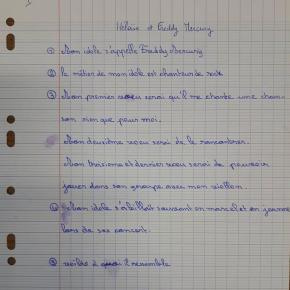 Hélaine et Freddy Mercury
① Mon idole s'appelle Freddy Mercury
② le métier de mon idole est chanteur de rock
③ Mon premier voeu serai qu'il me chante une chan-
son rien que pour moi.
Mon deuxième voeu serai de le rencontrer.
Mon troisième et dernier voeu serai de pouvoir
jouer dans son groupe avec mon violon.
④ Mon idole s'abillait souvent en marcel et en jean
lors de ses concert.
⑤ voilà à quoi il ressemble